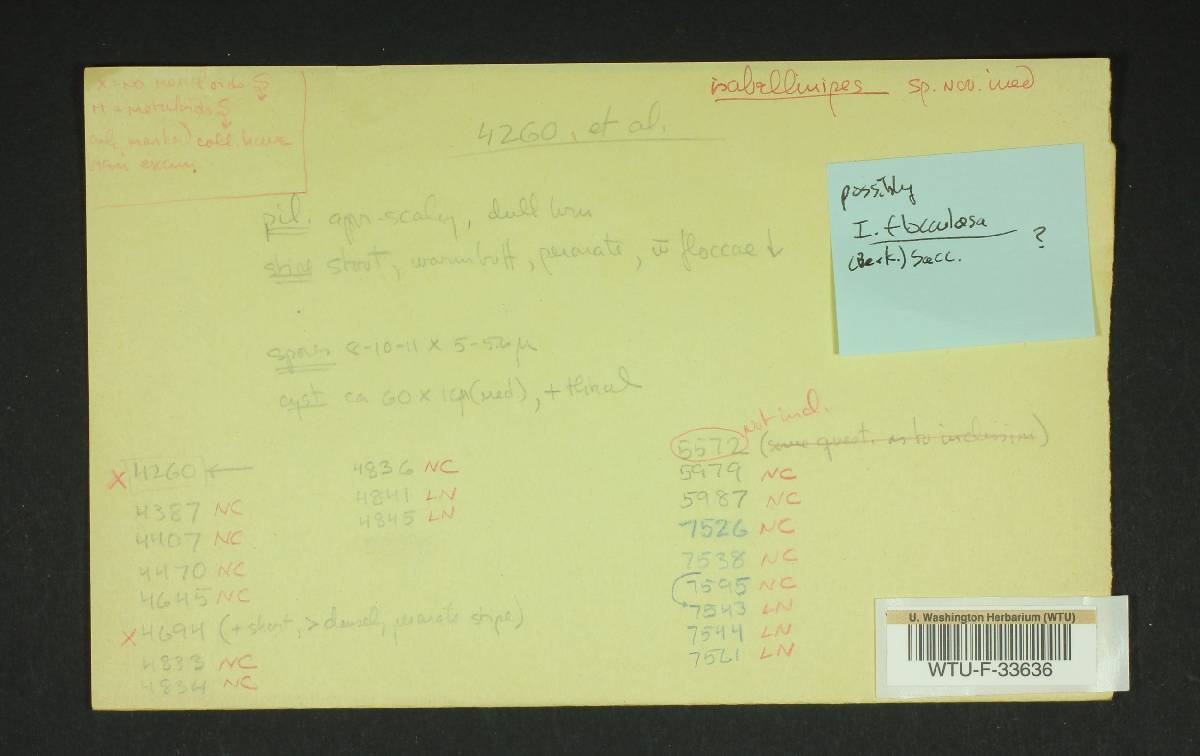 X = no metuloids ⚲
M = metuloids ⚲
only marked coll. have
been exam.
isabellinipes sp. nov. ined
4260, et al.
possibly
I. flocculosa
(Berk.) Sacc. ?
pil. appr-scaly, dull brn
stipe stout, warm buff, peronate, w̄ floccae ↓
spores 8-10-11 x 5-5.6µ
cyst ca 60 x 16µ (med), + thinwal
X 4260 ←
4387 NC
4407 NC
4470 NC
4645 NC
X 4694 (+ short, > densely peronate stipe)
4833 NC
4834 NC
4836 NC
4841 LN
4845 LN
5572 (some quest. as to inclusion) not incl.
5979 NC
5987 NC
7526 NC
7538 NC
7595 NC
7543 LN
7544 LN
7561 LN
U. Washington Herbarium (WTU)
WTU-F-33636